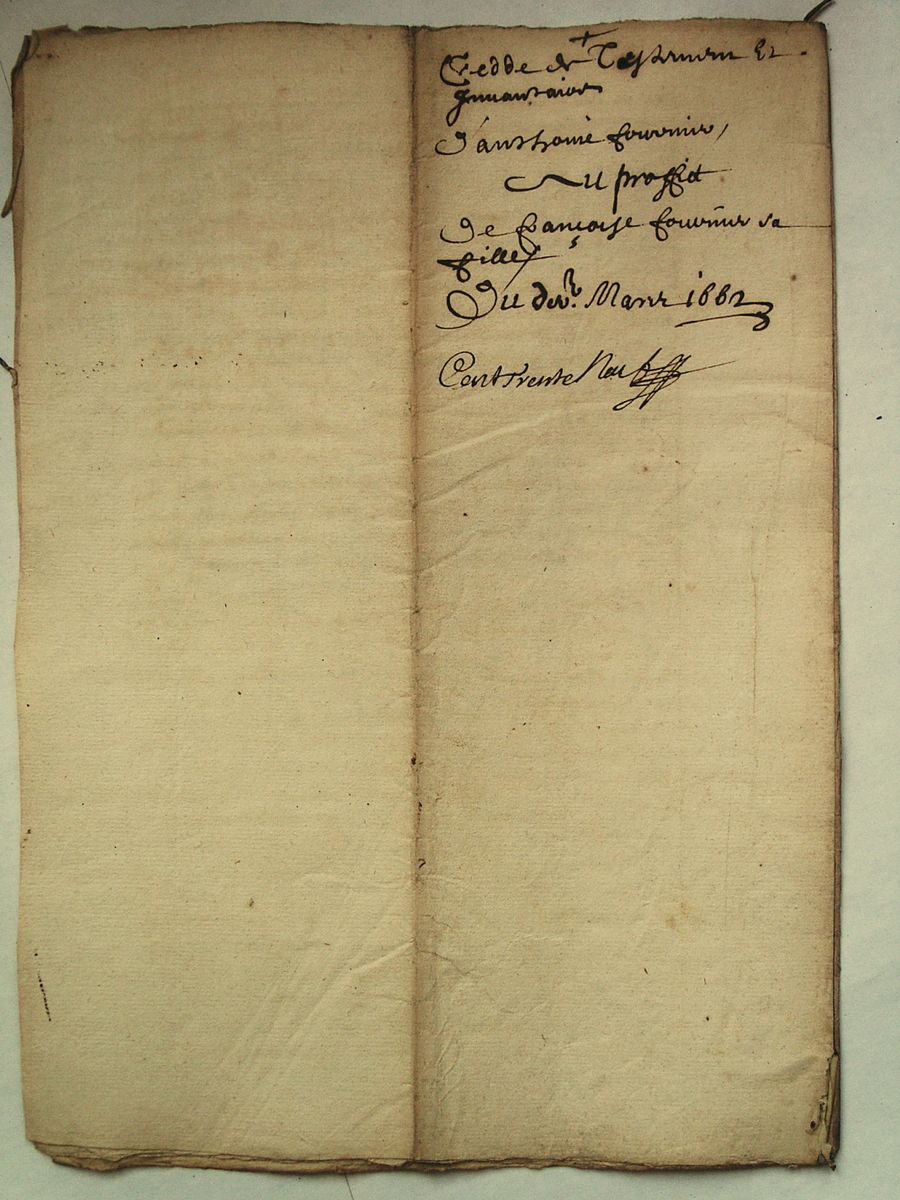 Cedde de Testament Et
Inuantaire
d'anthoine fournier
Au proffict
De françoise fournier sa
fille
Du der. Mars 1662
Cent Trente Neuf